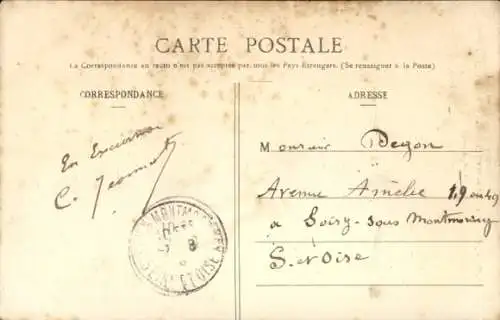 CARTE POSTALE
La Correspondance au recto n'est pas acceptée par tous les Pays Étrangers. (Se renseigner à la Poste)
CORRESPONDANCE
ADRESSE
En Excursion
C.
Monsieur
Avenue Amélie 19 ou 49
à Soisy-sous Montmorency
S. et Oise
MONTMORENCY
SEINE ET OISE